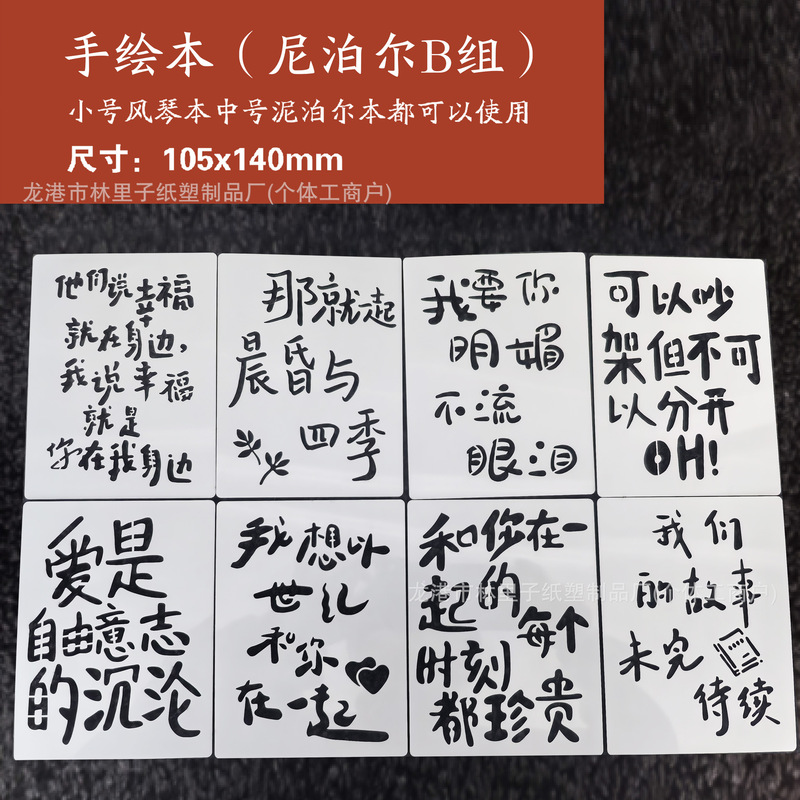 手绘本（尼泊尔B组）
小号风琴本中号泥泊尔本都可以使用
尺寸：105x140mm
龙港市林里子纸塑制品厂(个体工商户)
他们说幸福
就在身边，
我说幸福
就是
你在我身边
那就一起
晨昏与
四季
我要你
明媚
不流
眼泪
可以吵
架但不可
以分开
OH!
爱是
自由意志
的沉沦
我想以
世纪
和你
在一起
和你在一
起的
每个
时刻
都珍贵
我们
的故事
未完
待续
龙港市林里子纸塑制品厂(个体工商户)